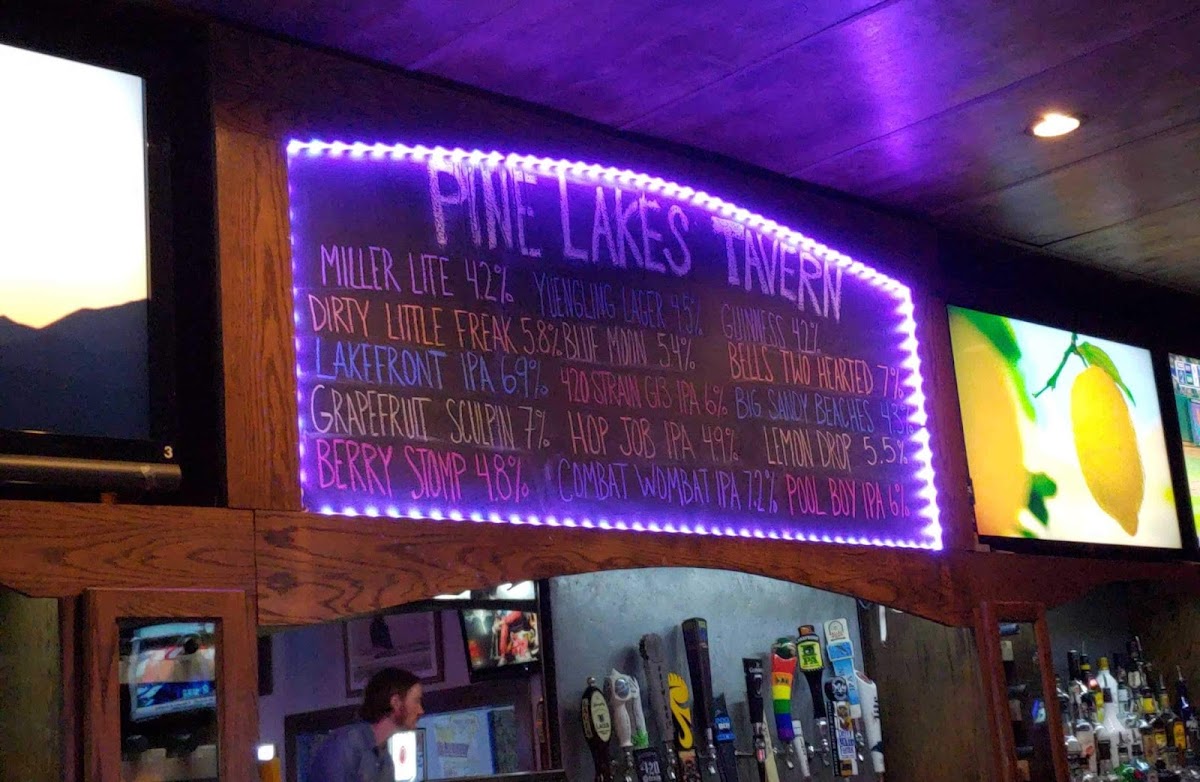 PINE LAKES TAVERN
MILLER LITE 4.2% YUENGLING LAGER 4.5% GUINNESS 4.2%
DIRTY LITTLE FREAK 5.8% BLUE MOON 5.4% BELLS TWO HEARTED 7%
LAKEFRONT IPA 6.9% 420 STRAIN G13 IPA 6% BIG SANDY BEACHES 4.3%
GRAPEFRUIT SCULPIN 7% HOP JOB IPA 4.9% LEMON DROP 5.5%
BERRY STOMP 4.8% COMBAT WOMBAT IPA 7.2% POOL BOY IPA 6%
3